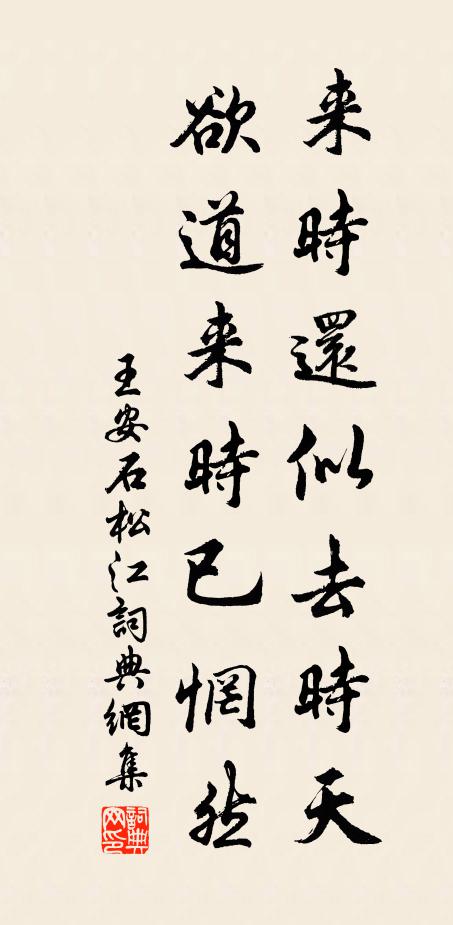 来時還似去時天
欲道来時已惘然
王安石松江詞典網集
詞典網印